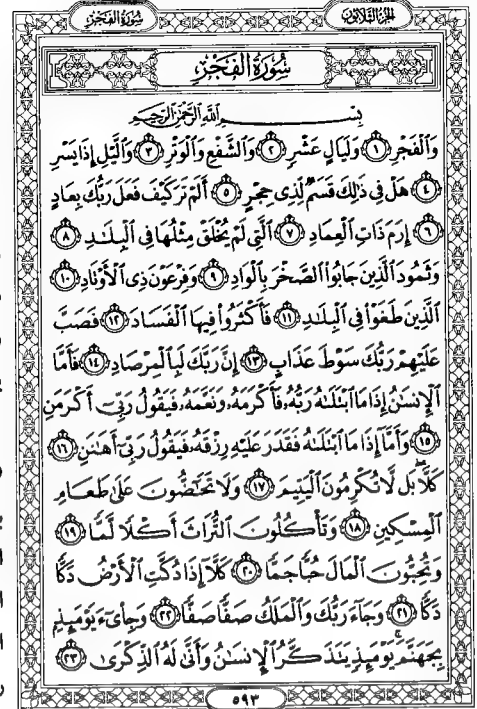 الجزء الثلاثون
سورة الفجر
سُورَةُ الْفَجْرِ
بِسْمِ اللَّهِ الرَّحْمَٰنِ الرَّحِيمِ
وَالْفَجْرِ ١ وَلَيَالٍ عَشْرٍ ٢ وَالشَّفْعِ وَالْوَتْرِ ٣ وَاللَّيْلِ إِذَا يَسْرِ
٤ هَلْ فِي ذَٰلِكَ قَسَمٌ لِّذِي حِجْرٍ ٥ أَلَمْ تَرَ كَيْفَ فَعَلَ رَبُّكَ بِعَادٍ
٦ إِرَمَ ذَاتِ الْعِمَادِ ٧ الَّتِي لَمْ يُخْلَقْ مِثْلُهَا فِي الْبِلَٰدِ ٨
وَثَمُودَ الَّذِينَ جَابُوا الصَّخْرَ بِالْوَادِ ٩ وَفِرْعَوْنَ ذِي الْأَوْتَادِ ١٠
الَّذِينَ طَغَوْا فِي الْبِلَٰدِ ١١ فَأَكْثَرُوا فِيهَا الْفَسَادَ ١٢ فَصَبَّ
عَلَيْهِمْ رَبُّكَ سَوْطَ عَذَابٍ ١٣ إِنَّ رَبَّكَ لَبِالْمِرْصَادِ ١٤ فَأَمَّا
الْإِنسَٰنُ إِذَا مَا ابْتَلَىٰهُ رَبُّهُۥ فَأَكْرَمَهُۥ وَنَعَّمَهُۥ فَيَقُولُ رَبِّي أَكْرَمَنِ
١٥ وَأَمَّا إِذَا مَا ابْتَلَىٰهُ فَقَدَرَ عَلَيْهِ رِزْقَهُۥ فَيَقُولُ رَبِّي أَهَٰنَنِ ١٦
كَلَّا ۖ بَل لَّا تُكْرِمُونَ الْيَتِيمَ ١٧ وَلَا تَحَٰضُّونَ عَلَىٰ طَعَامِ
الْمِسْكِينِ ١٨ وَتَأْكُلُونَ التُّرَاثَ أَكْلًا لَّمًّا ١٩
وَتُحِبُّونَ الْمَالَ حُبًّا جَمًّا ٢٠ كَلَّا إِذَا دُكَّتِ الْأَرْضُ دَكًّا
دَكًّا ٢١ وَجَاءَ رَبُّكَ وَالْمَلَكُ صَفًّا صَفًّا ٢٢ وَجِا۟يٓءَ يَوْمَئِذٍ
بِجَهَنَّمَ ۚ يَوْمَئِذٍ يَتَذَكَّرُ الْإِنسَٰنُ وَأَنَّىٰ لَهُ الذِّكْرَىٰ ٢٣
٥٩٣